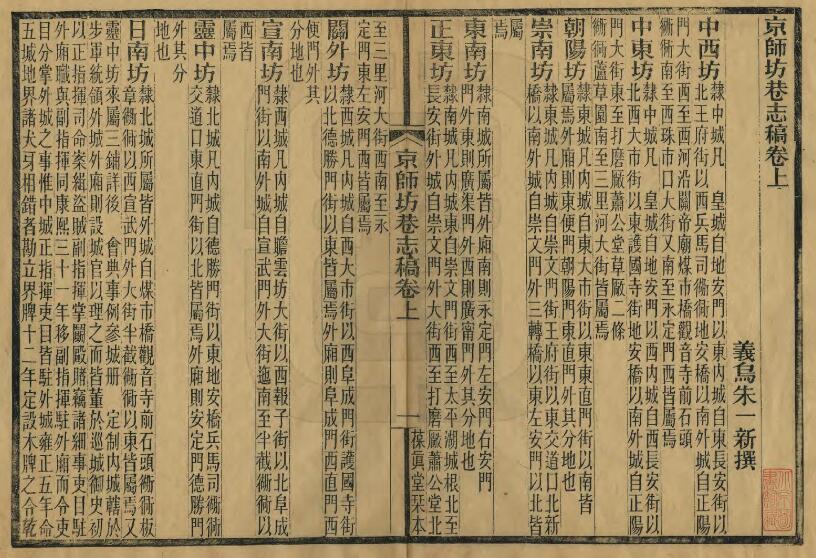 京師坊巷志稿卷上
義烏朱一新撰
中西坊
隸中城凡　皇城自地安門以東內城自東長安街以
北王府街以西兵馬司衚衕地安橋以南外城自正陽
門大街西至西河沿關帝廟煤市橋觀音寺前石頭
衚衕南至西珠市口大街又南至永定門西皆屬焉
中東坊
隸中城凡　皇城自地安門以西內城自西長安街以
北西大市街以東護國寺街地安橋以南外城自正陽
門大街東至打磨厰蕭公堂草厰二條
衚衕蘆草園南至三里河大街皆屬焉
朝陽坊
隸東城凡內城自東大市街以東東直門街以南皆
屬焉外廂則東便門朝陽門東直門外其分地也
崇南坊
隸東城凡內城自崇文門街王府街以東交道口北新
橋以南外城自崇文門外三轉橋以東左安門以北皆
屬
焉
東南坊
隸南城所屬皆外廂南則永定門左安門右安門
門外東則廣渠門外西則廣甯門外其分地也
正東坊
隸南城凡內城東自崇文門街西至太平湖城根北至
長安街外城自崇文門外大街西至打磨厰蕭公堂北
京師坊巷志稿卷上
一
葆真堂栞本
至三里河大街西南至永
定門東左安門西皆屬焉
關外坊
隸西城凡內城自西大市街以西阜成門街護國寺街
以北德勝門街以東皆屬焉外廂則阜成門西直門西
便門外其
分地也
宣南坊
隸西城凡內城自瞻雲坊大街以西報子街以北阜成
門街以南外城自宣武門外大街迤南至半截衚衕以
西皆
屬焉
靈中坊
隸北城凡內城自德勝門街以東地安橋兵馬司衚衕
交道口東直門街以北皆屬焉外廂則安定門德勝門
外其分
地也
日南坊
隸北城所屬皆外城自煤市橋觀音寺前石頭衚衕板
章衚衕以西宣武門外大街半截衚衕以東皆屬焉又
靈中坊來屬三鋪詳後　會典事例參城冊　定制內城轄於
步軍統領外城外廂則設城官以理之而皆董於巡城御史初
以正指揮司命案緝盜賊副指揮掌鬬毆賭竊諸細事吏目駐
外廂職與副指揮同康熙三十一年移副指揮駐外廂而令吏
目分掌外城之事惟中城正指揮吏目皆駐外城雍正五年命
五城地界諸犬牙相錯者勘立界牌十二年定設木牌之合乾